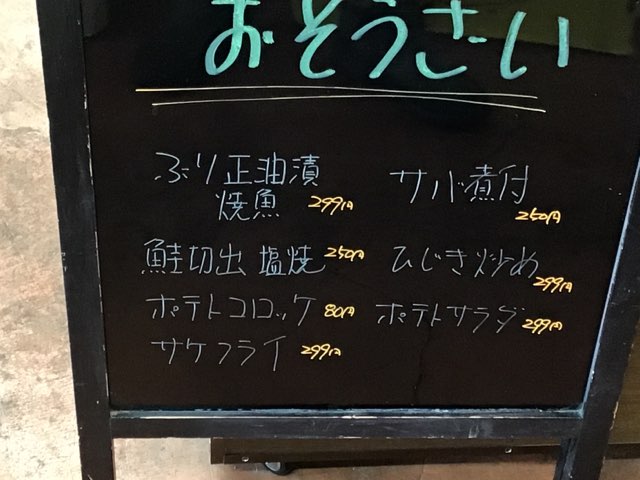 おそうざい
ぶり正油漬
焼魚 299円
サバ煮付
250円
鮭切出 塩焼 250円
ひじき炒め
299円
ポテトコロッケ 80円
ポテトサラダ 299円
サケフライ 299円